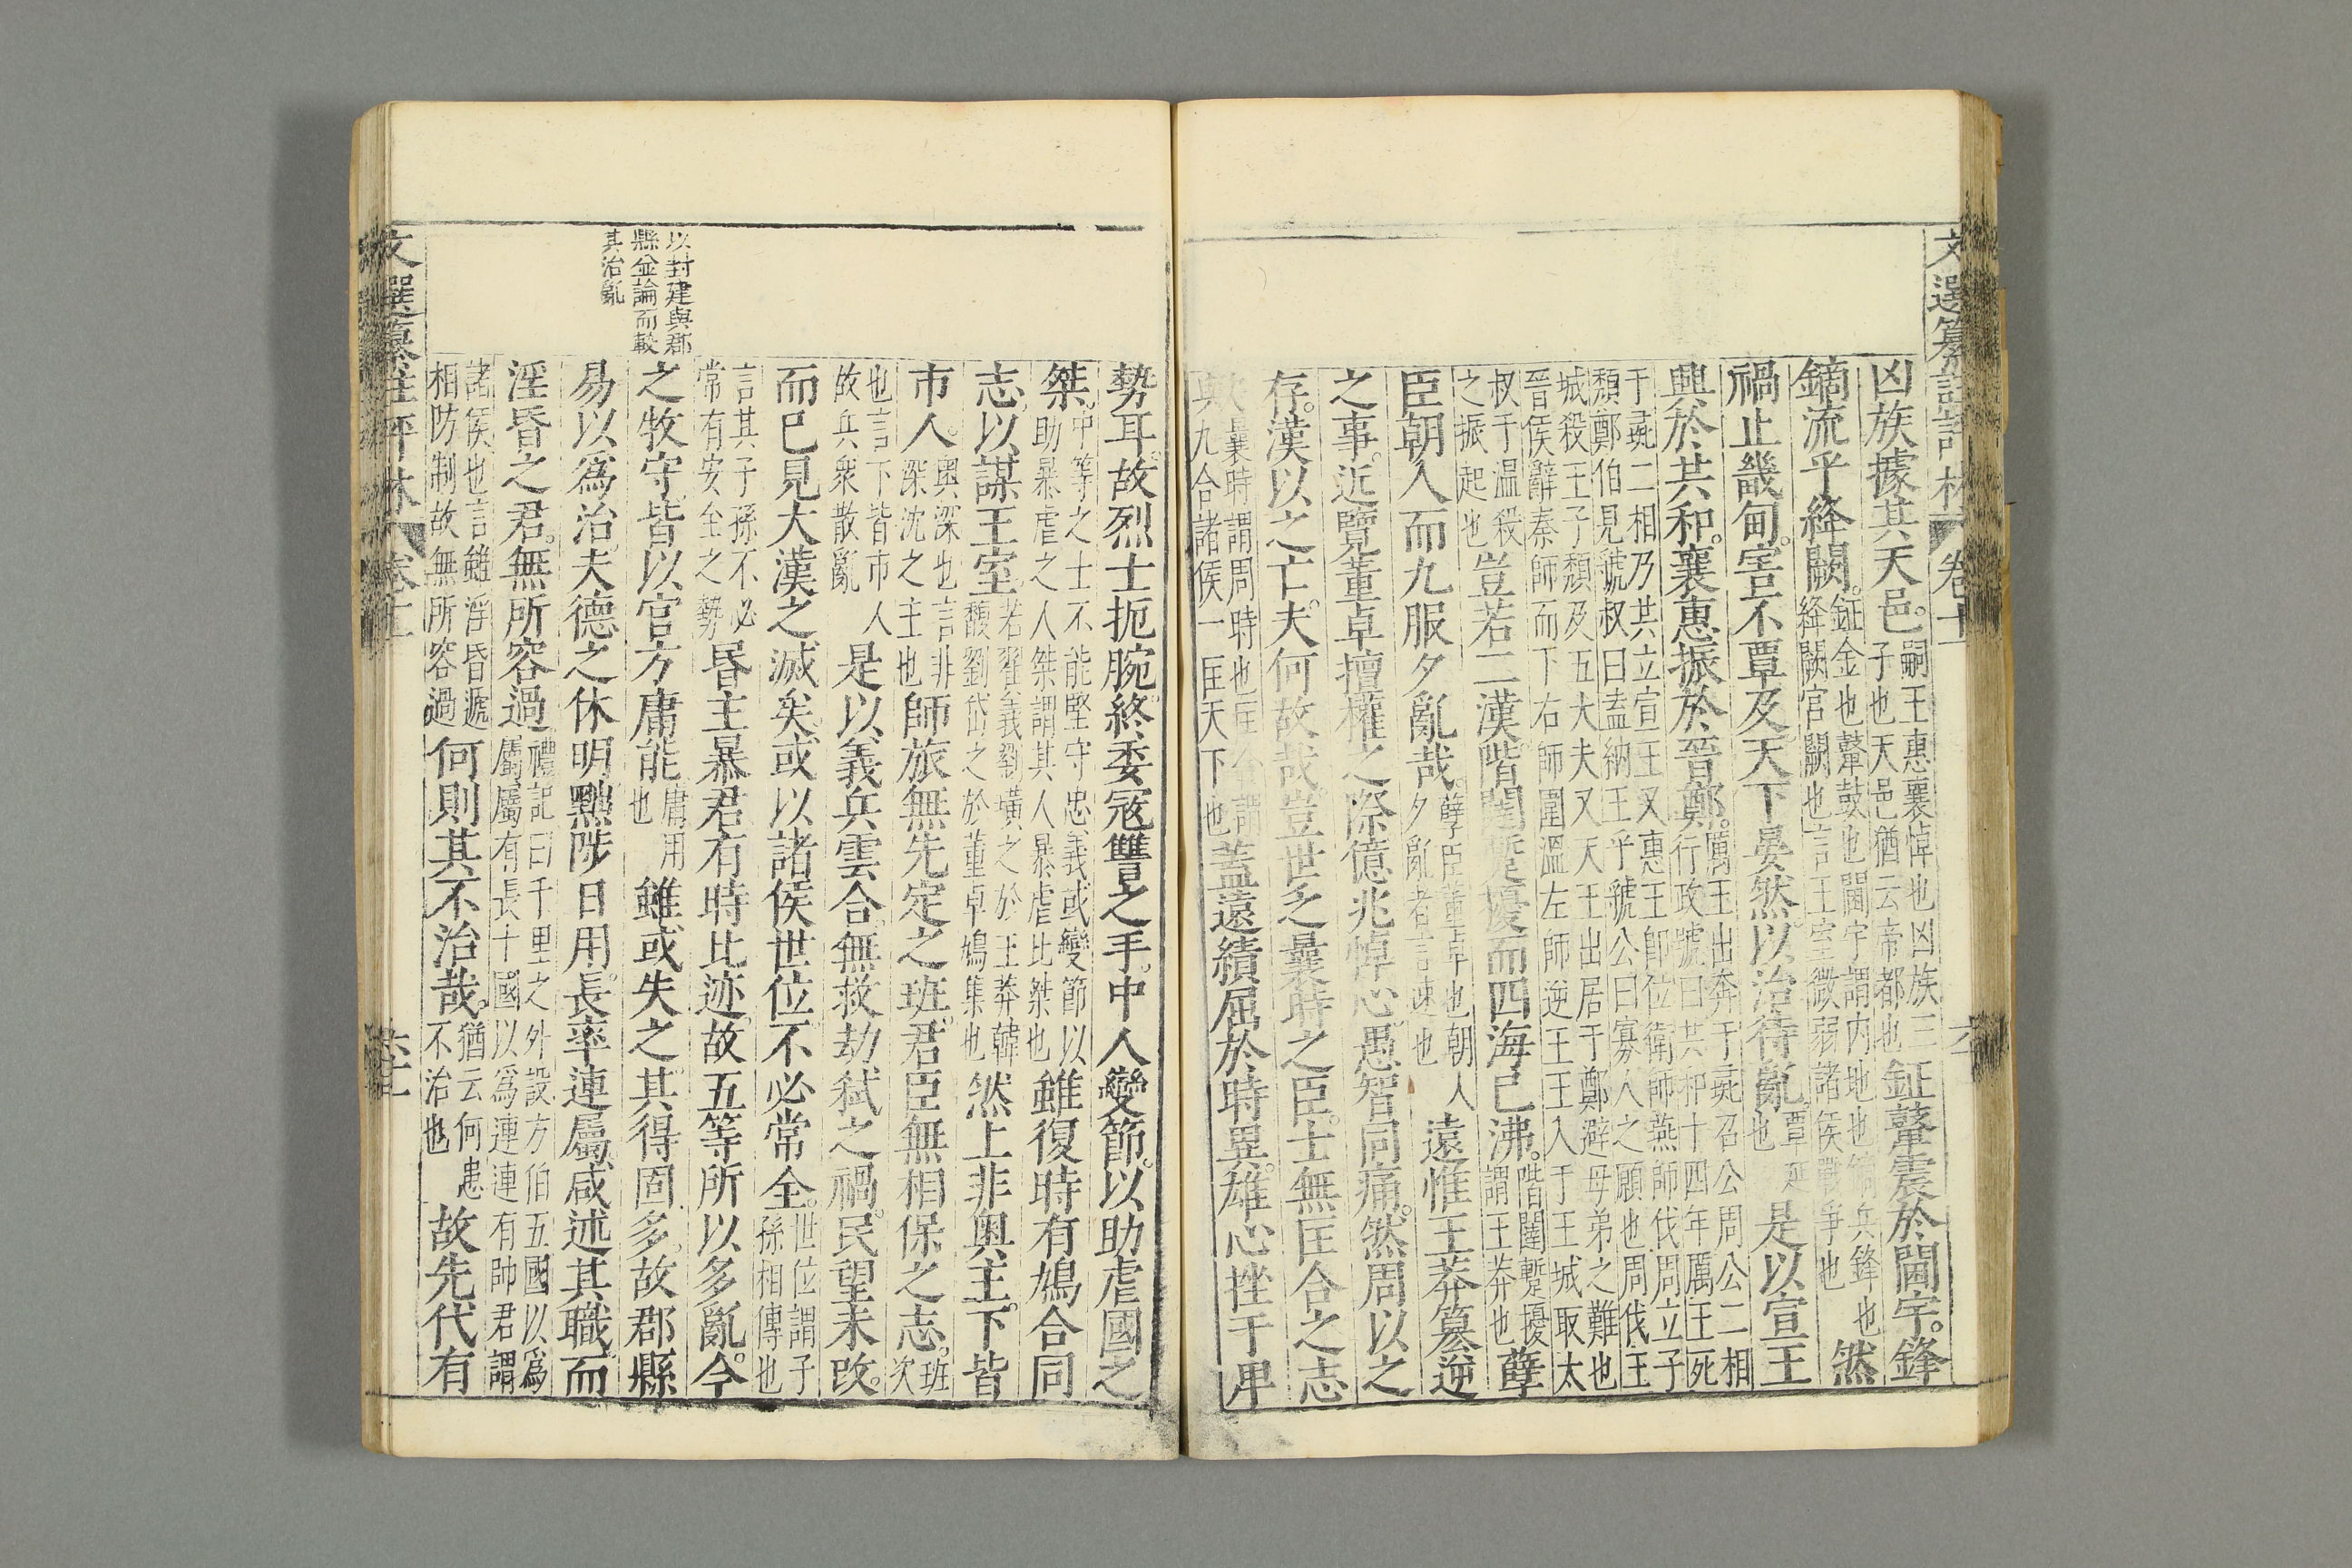 文選纂註評林 卷十
凶族據其天邑。嗣王惠襄悼也凶族三子也天邑猶云帝都也鉦鼙震於閫宇。鋒
鏑流乎絳闕。鉦金也鼙鼓也閫宇謂内地也鏑兵鋒也絳闕宫闕也言王室微弱諸侯戰爭也然
禍止畿甸。害不覃及天下晏然。以治待亂。覃延也是以宣王
興於共和。襄惠振於晉鄭。厲王出奔于彘召公周公二相行政號曰共和十四年厲王死
于彘二相乃共立宣王又惠王即位衛師燕師伐周立子頹鄭伯見虢叔曰盍納王乎虢公曰寡人之願也周伐王
城殺王子頹及五大夫又天王出居于鄭避母弟之難也晉侯辭秦師而下右師圍溫左師逆王王入于王城取太
叔于溫殺之振起也豈若二漢階闥暫擾而四海已沸。階闥暫擾謂王莽也孽
臣朝入而九服夕亂哉。孽臣董卓也朝人夕亂者言速也遠惟王莽篡逆
之事。近覽董卓擅權之際億兆悼心愚智同痛。然周以之
存。漢以之亡。夫何故哉。豈世乏曩時之臣。士無匡合之志
歟曩時謂周時也匡合謂與九合諸侯一匡天下也蓋遠績屈於時異。雄心挫于卑
勢耳。故烈士扼腕。終委寇讐之手。中人變節。以助虐國之
桀。中等之士不能堅守忠義或變節以助暴虐之人桀謂其人暴虐比桀也雖復時有鳩合同
志以謀王室。若翟義劉璜之於王莽韓馥劉岱之於董卓鳩集也然上非奥主。下皆
市人。奥深也言非深沈之主也師旅無先定之班。君臣無相保之志。班次
也言下皆市人故兵衆散亂是以義兵雲合。無救劫弑之禍。民望未改。
而已見大漢之滅矣。或以諸侯世位不必常全。世位謂子孫相傳也
言其子孫不必常有安全之勢昬主暴君有時比迹。故五等所以多亂。今
之牧守。皆以官方庸能。庸用也雖或失之。其得固多。故郡縣
易以爲治。夫德之休明。黜陟日用。長率連屬。咸述其職。而
淫昏之君。無所容過。禮記曰千里之外設方伯五國以爲屬屬有長十國以爲連連有帥君謂
諸侯也言雖浮昏遞相防制故無所容過何則其不治哉。猶云何患不治也故先代有
以封建與郡
縣並論而較
其治亂
文選纂註評林 卷十